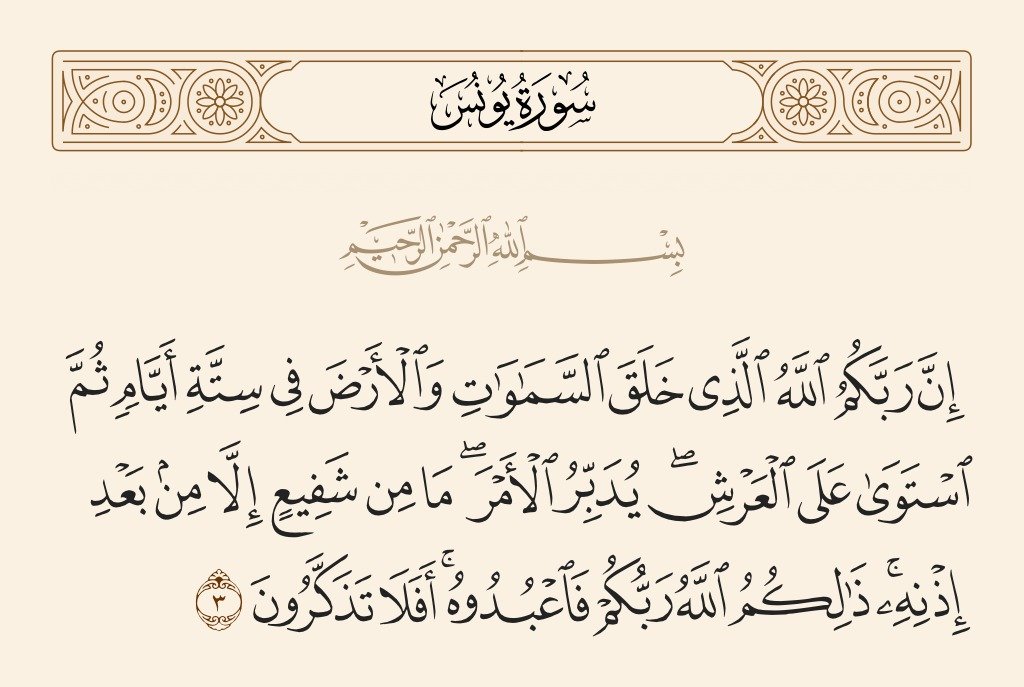 سُورَةُ يُونُسَ
بِسْمِ ٱللَّهِ ٱلرَّحْمَٰنِ ٱلرَّحِيمِ
إِنَّ رَبَّكُمُ ٱللَّهُ ٱلَّذِى خَلَقَ ٱلسَّمَٰوَٰتِ وَٱلْأَرْضَ فِى سِتَّةِ أَيَّامٍ ثُمَّ
ٱسْتَوَىٰ عَلَى ٱلْعَرْشِ ۖ يُدَبِّرُ ٱلْأَمْرَ ۖ مَا مِن شَفِيعٍ إِلَّا مِنۢ بَعْدِ
إِذْنِهِۦ ۚ ذَٰلِكُمُ ٱللَّهُ رَبُّكُمْ فَٱعْبُدُوهُ ۚ أَفَلَا تَذَكَّرُونَ ٣